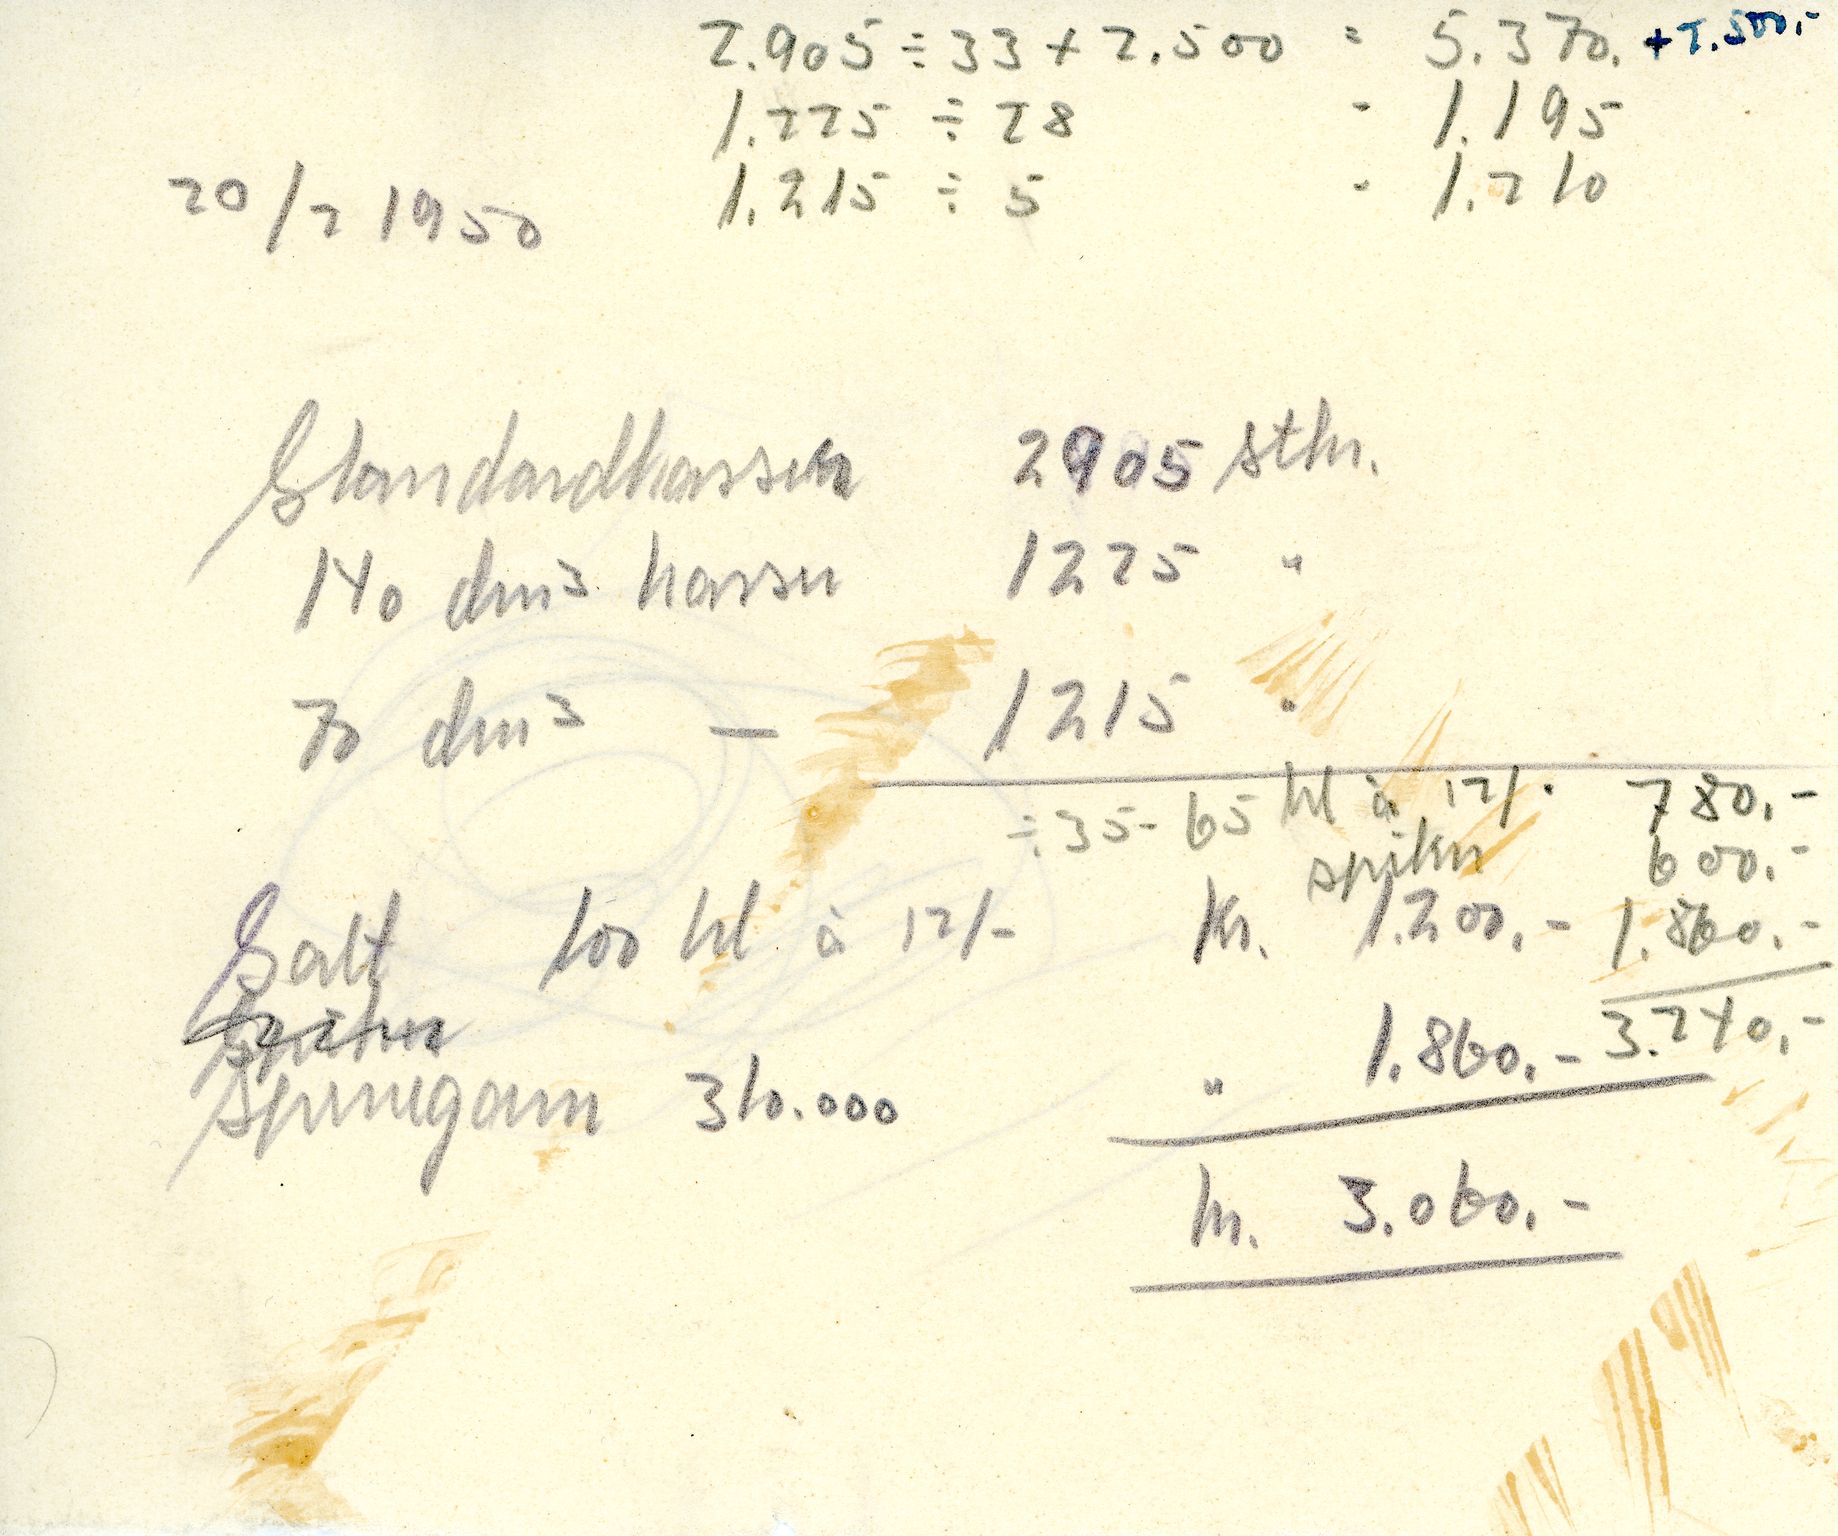 2.905 ÷ 33 + 2.500 = 5.370. + 2.500.-
1.225 ÷ 28 - 1.195
1.215 ÷ 5 - 1.210
20/2 1950
Standardkasser 2905 stkr.
140 dm³ kasser 1225 "
70 dm³ — 1215 "
÷ 35 - 65 hl à 12/- 780.-
spiker 600.-
Salt 100 hl à 12/- Kr. 1.200.- 1.860.-
spiker
Spunigarn 310.000 " 1.860.- 3.240.-
kr. 3.060.-